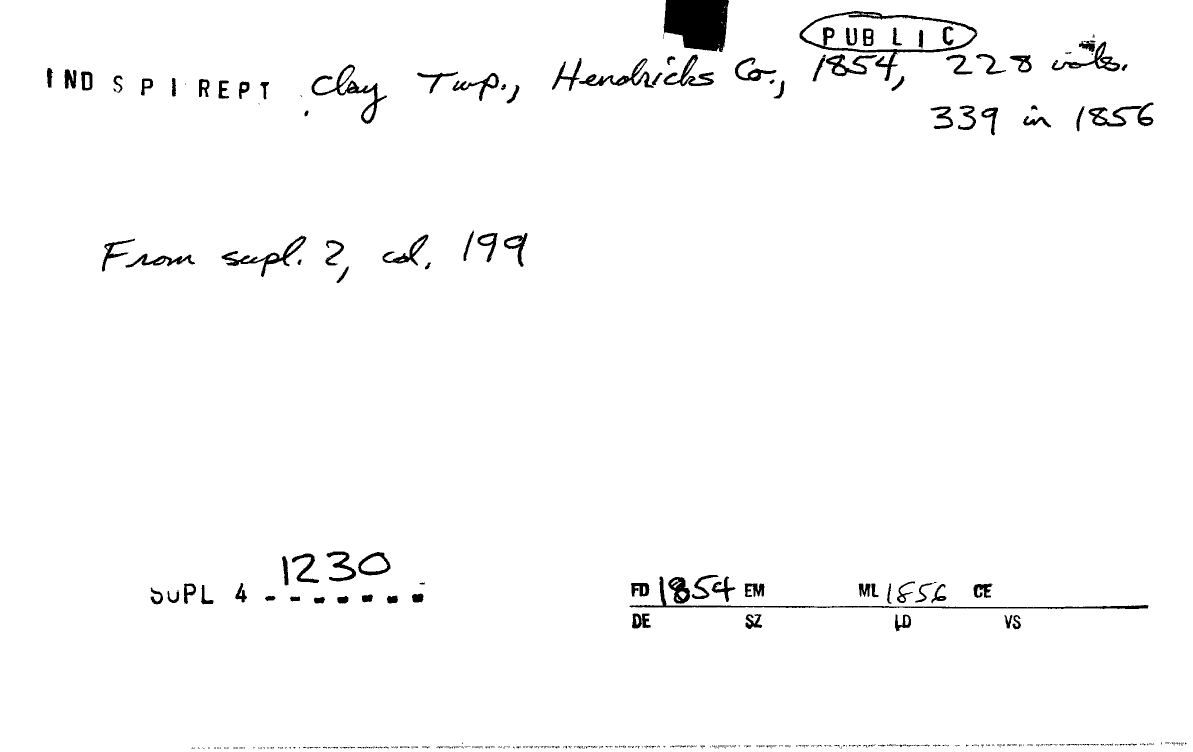 PUBLIC
IND SPI REPT Clay Twp., Hendricks Co., 1854, 228 vols.
339 in 1856
From supl. 2, col. 199
SUPL 4 1230
FD 1854 EM ML 1856 CE
DE SZ LD VS